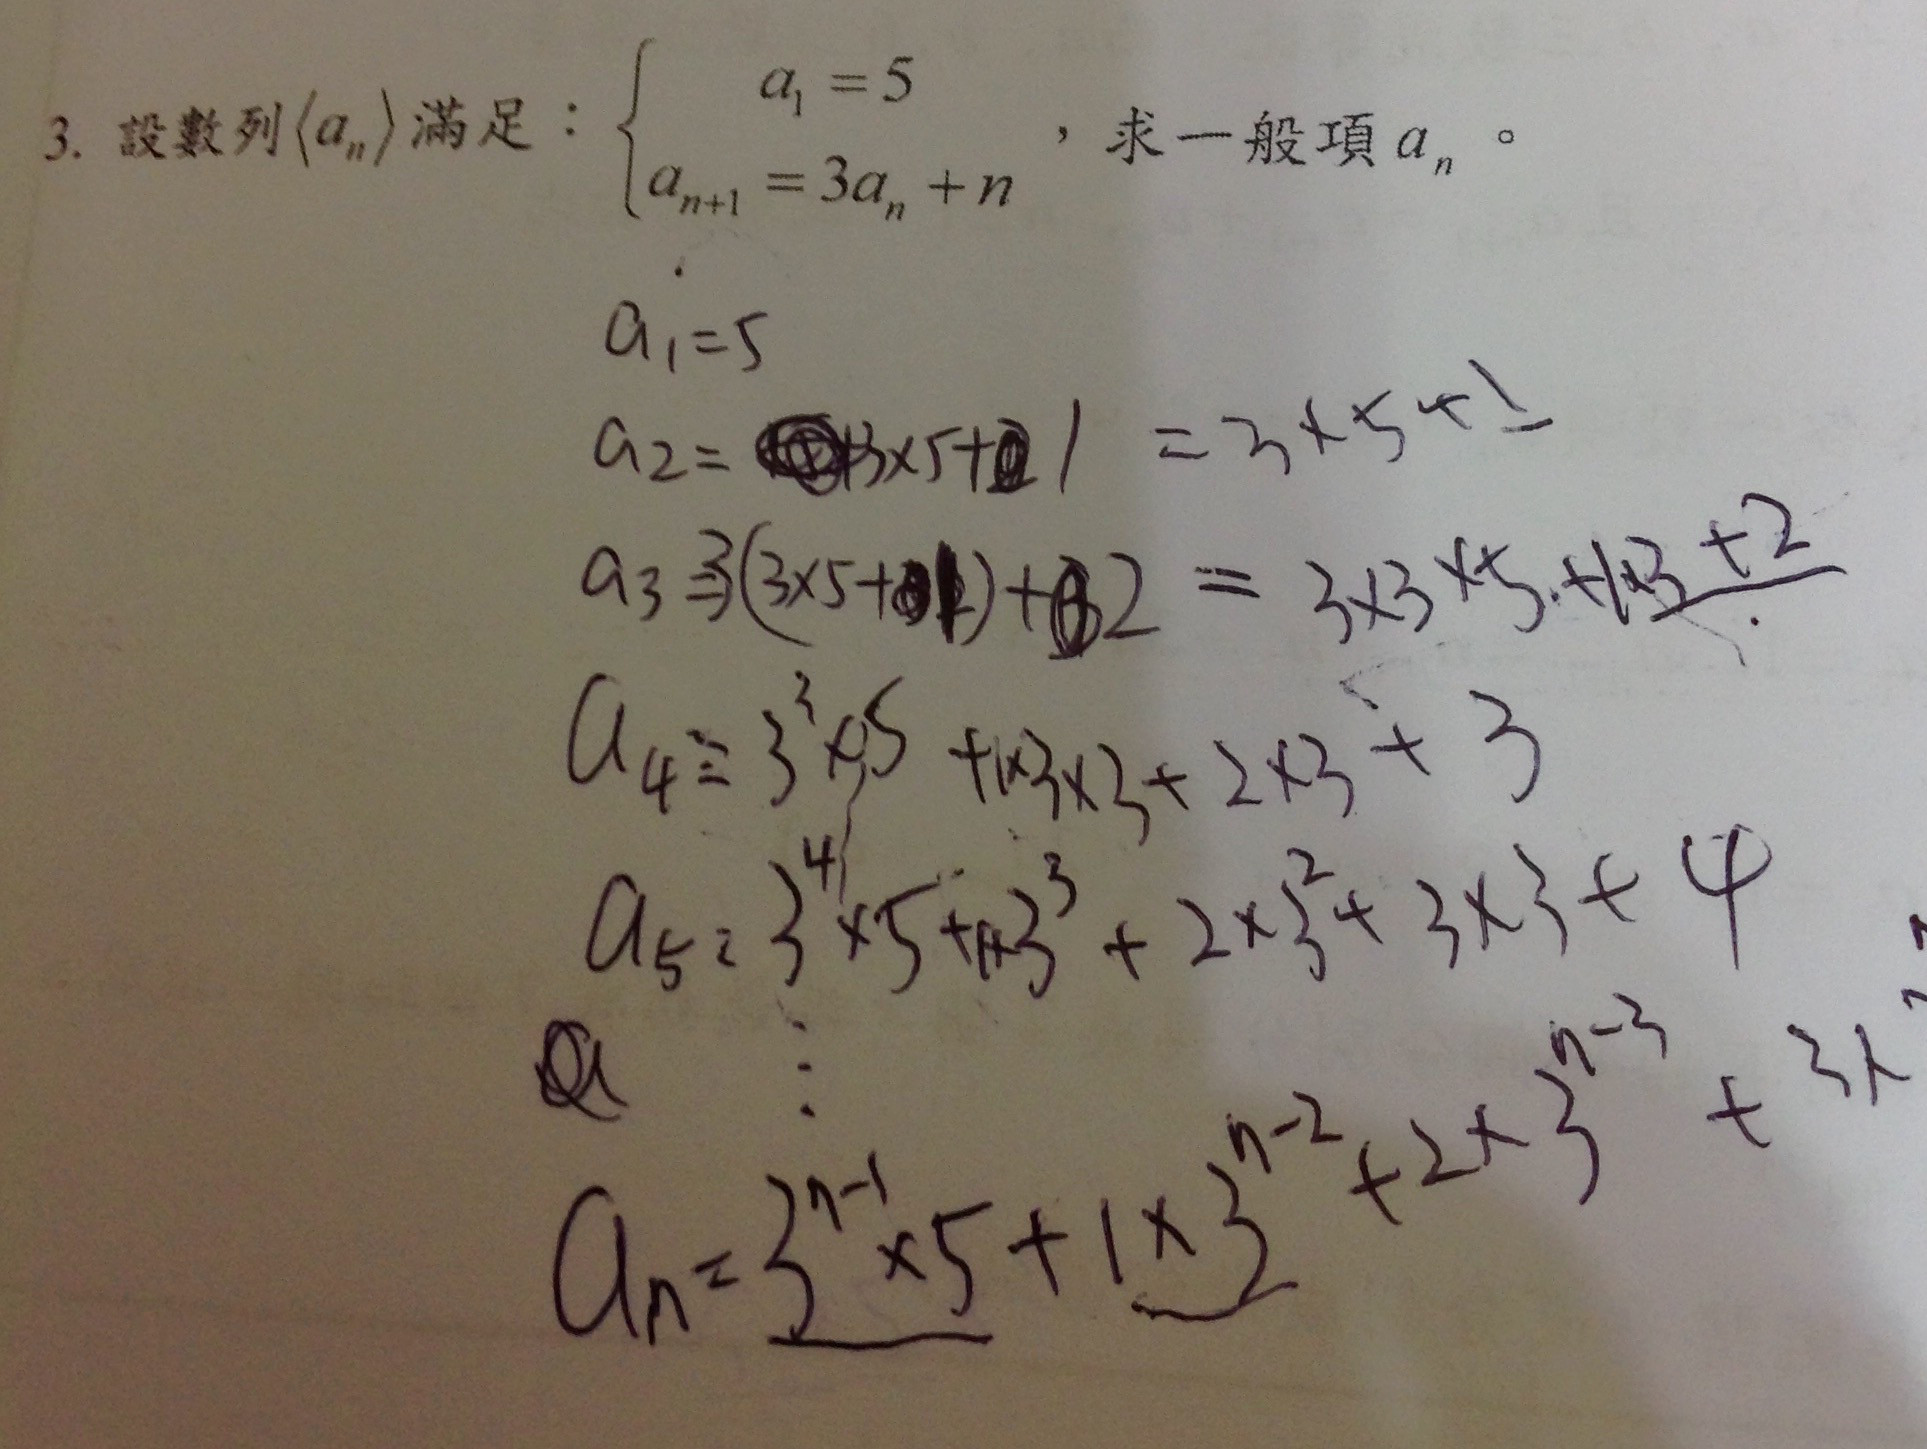 3. 設數列⟨aₙ⟩滿足：{ a₁ = 5
aₙ₊₁ = 3aₙ + n ，求一般項 aₙ。
a₁=5
a₂= 3×5+1 = 3×5+1
a₃=3(3×5+1)+2 = 3×3×5+1×3+2
a₄=3³×5 +1×3×3+2×3+3
a₅=3⁴×5+1×3³+2×3²+3×3+4
a ⋮
aₙ=3ⁿ⁻¹×5+1×3ⁿ⁻²+2×3ⁿ⁻³+3×